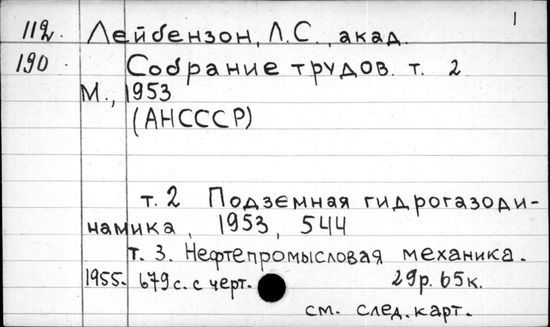 1
112. Лейбензон, Л.С., акад.
190. Собрание трудов. т. 2
М., 1953
(АНСССР)
т. 2 Подземная гидрогазоди-
намика, 1953, 544
т. 3. Нефтепромысловая механика.
1955. 679 с. с черт. 29р. 65к.
см. след. карт.